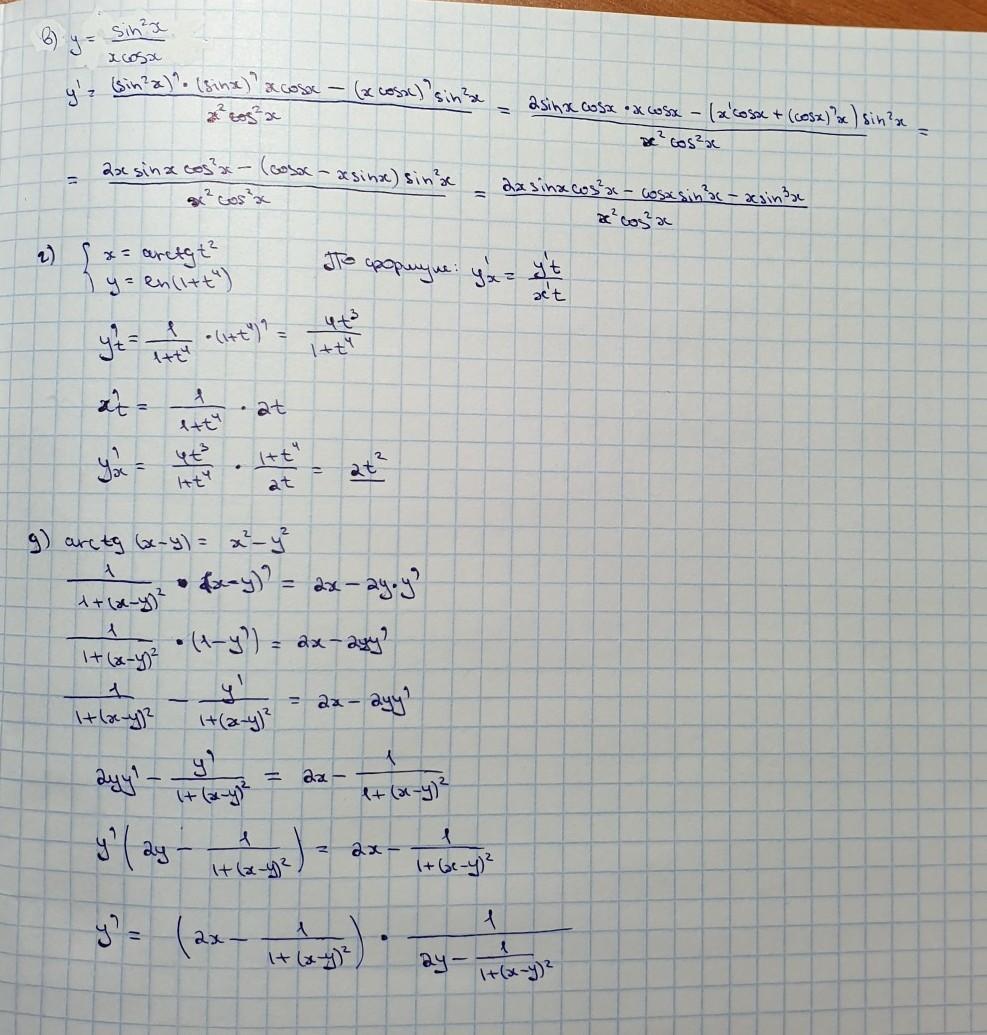 в) y = sin²x / (x cosx)
y' = ((sin²x)' · (sinx)' x cosx − (x cosx)' sin²x) / (x² cos²x) = (2 sinx cosx · x cosx − (x' cosx + (cosx)' x) sin²x) / (x² cos²x) =
= (2x sinx cos²x − (cosx − x sinx) sin²x) / (x² cos²x) = (2x sinx cos²x − cosx sin²x − x sin³x) / (x² cos²x)
г) { x = arctg t²
y = ln(1+t⁴)
По формуле: y'x = y't / x't
y't = 1/(1+t⁴) · (1+t⁴)' = 4t³/(1+t⁴)
x't = 1/(1+t⁴) · 2t
y'x = 4t³/(1+t⁴) · (1+t⁴)/2t = 2t²
g) arctg (x−y) = x² − y²
1/(1+(x−y)²) · (x−y)' = 2x − 2y·y'
1/(1+(x−y)²) · (1−y') = 2x − 2yy'
1/(1+(x−y)²) − y'/(1+(x−y)²) = 2x − 2yy'
2yy' − y'/(1+(x−y)²) = 2x − 1/(1+(x−y)²)
y' (2y − 1/(1+(x−y)²)) = 2x − 1/(1+(x−y)²)
y' = (2x − 1/(1+(x−y)²)) · 1/(2y − 1/(1+(x−y)²))